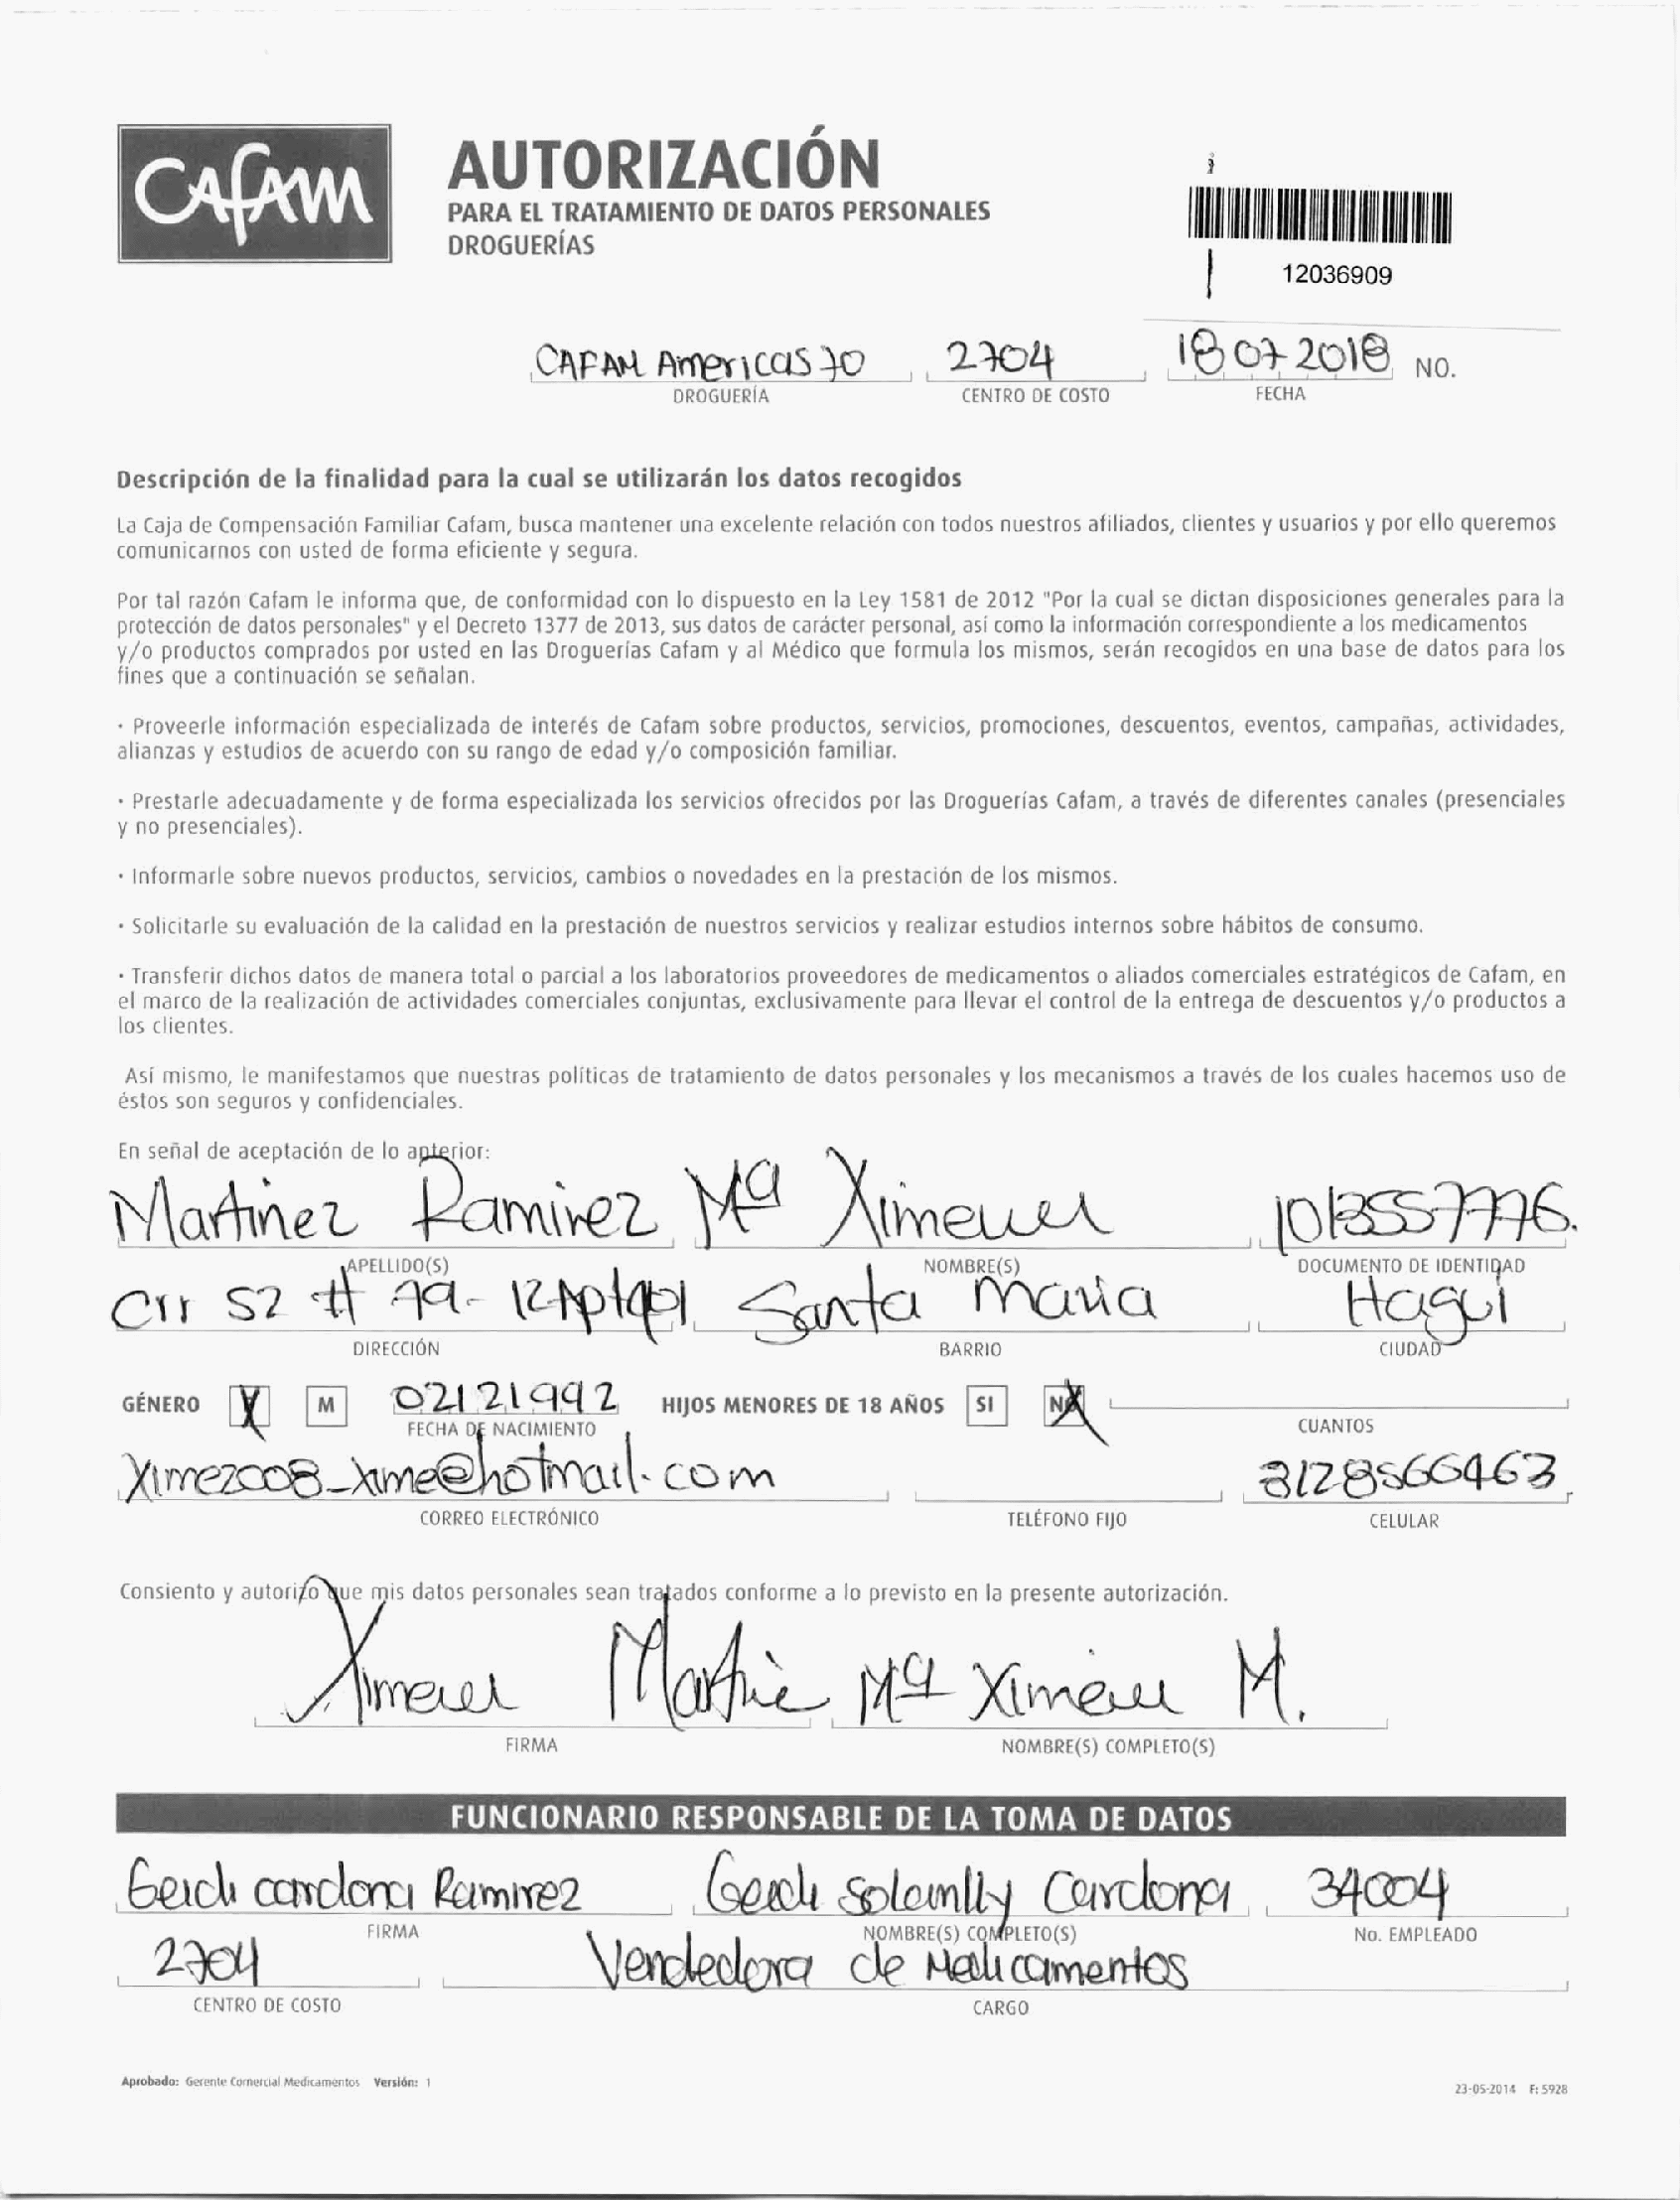 CAFAM
AUTORIZACIÓN
PARA EL TRATAMIENTO DE DATOS PERSONALES
DROGUERÍAS
12036909
CAFAM Americas 70 2704 18 07 2018 NO.
DROGUERÍA CENTRO DE COSTO FECHA
Descripción de la finalidad para la cual se utilizarán los datos recogidos
La Caja de Compensación Familiar Cafam, busca mantener una excelente relación con todos nuestros afiliados, clientes y usuarios y por ello queremos
comunicarnos con usted de forma eficiente y segura.
Por tal razón Cafam le informa que, de conformidad con lo dispuesto en la Ley 1581 de 2012 "Por la cual se dictan disposiciones generales para la
protección de datos personales" y el Decreto 1377 de 2013, sus datos de carácter personal, así como la información correspondiente a los medicamentos
y/o productos comprados por usted en las Droguerías Cafam y al Médico que formula los mismos, serán recogidos en una base de datos para los
fines que a continuación se señalan.
· Proveerle información especializada de interés de Cafam sobre productos, servicios, promociones, descuentos, eventos, campañas, actividades,
alianzas y estudios de acuerdo con su rango de edad y/o composición familiar.
· Prestarle adecuadamente y de forma especializada los servicios ofrecidos por las Droguerías Cafam, a través de diferentes canales (presenciales
y no presenciales).
· Informarle sobre nuevos productos, servicios, cambios o novedades en la prestación de los mismos.
· Solicitarle su evaluación de la calidad en la prestación de nuestros servicios y realizar estudios internos sobre hábitos de consumo.
· Transferir dichos datos de manera total o parcial a los laboratorios proveedores de medicamentos o aliados comerciales estratégicos de Cafam, en
el marco de la realización de actividades comerciales conjuntas, exclusivamente para llevar el control de la entrega de descuentos y/o productos a
los clientes.
Así mismo, le manifestamos que nuestras políticas de tratamiento de datos personales y los mecanismos a través de los cuales hacemos uso de
éstos son seguros y confidenciales.
En señal de aceptación de lo anterior:
Martinez Ramirez Mª Ximena 1013557776.
APELLIDO(S) NOMBRE(S) DOCUMENTO DE IDENTIDAD
Crr 52 # 79- 12 Santa Maria Itagui
DIRECCIÓN BARRIO CIUDAD
GÉNERO X M 02121992 HIJOS MENORES DE 18 AÑOS SI NO X
FECHA DE NACIMIENTO CUANTOS
Xime2008_xime@hotmail.com 3128566463
CORREO ELECTRÓNICO TELÉFONO FIJO CELULAR
Consiento y autorizo que mis datos personales sean tratados conforme a lo previsto en la presente autorización.
Ximena Mª Ximena M.
FIRMA NOMBRE(S) COMPLETO(S)
FUNCIONARIO RESPONSABLE DE LA TOMA DE DATOS
cardona Ramirez Cardona 34004
FIRMA NOMBRE(S) COMPLETO(S) No. EMPLEADO
2704 Vendedora de Medicamentos
CENTRO DE COSTO CARGO
Aprobado: Gerente Comercial Medicamentos Versión: 1
23-05-2014 F: 5928